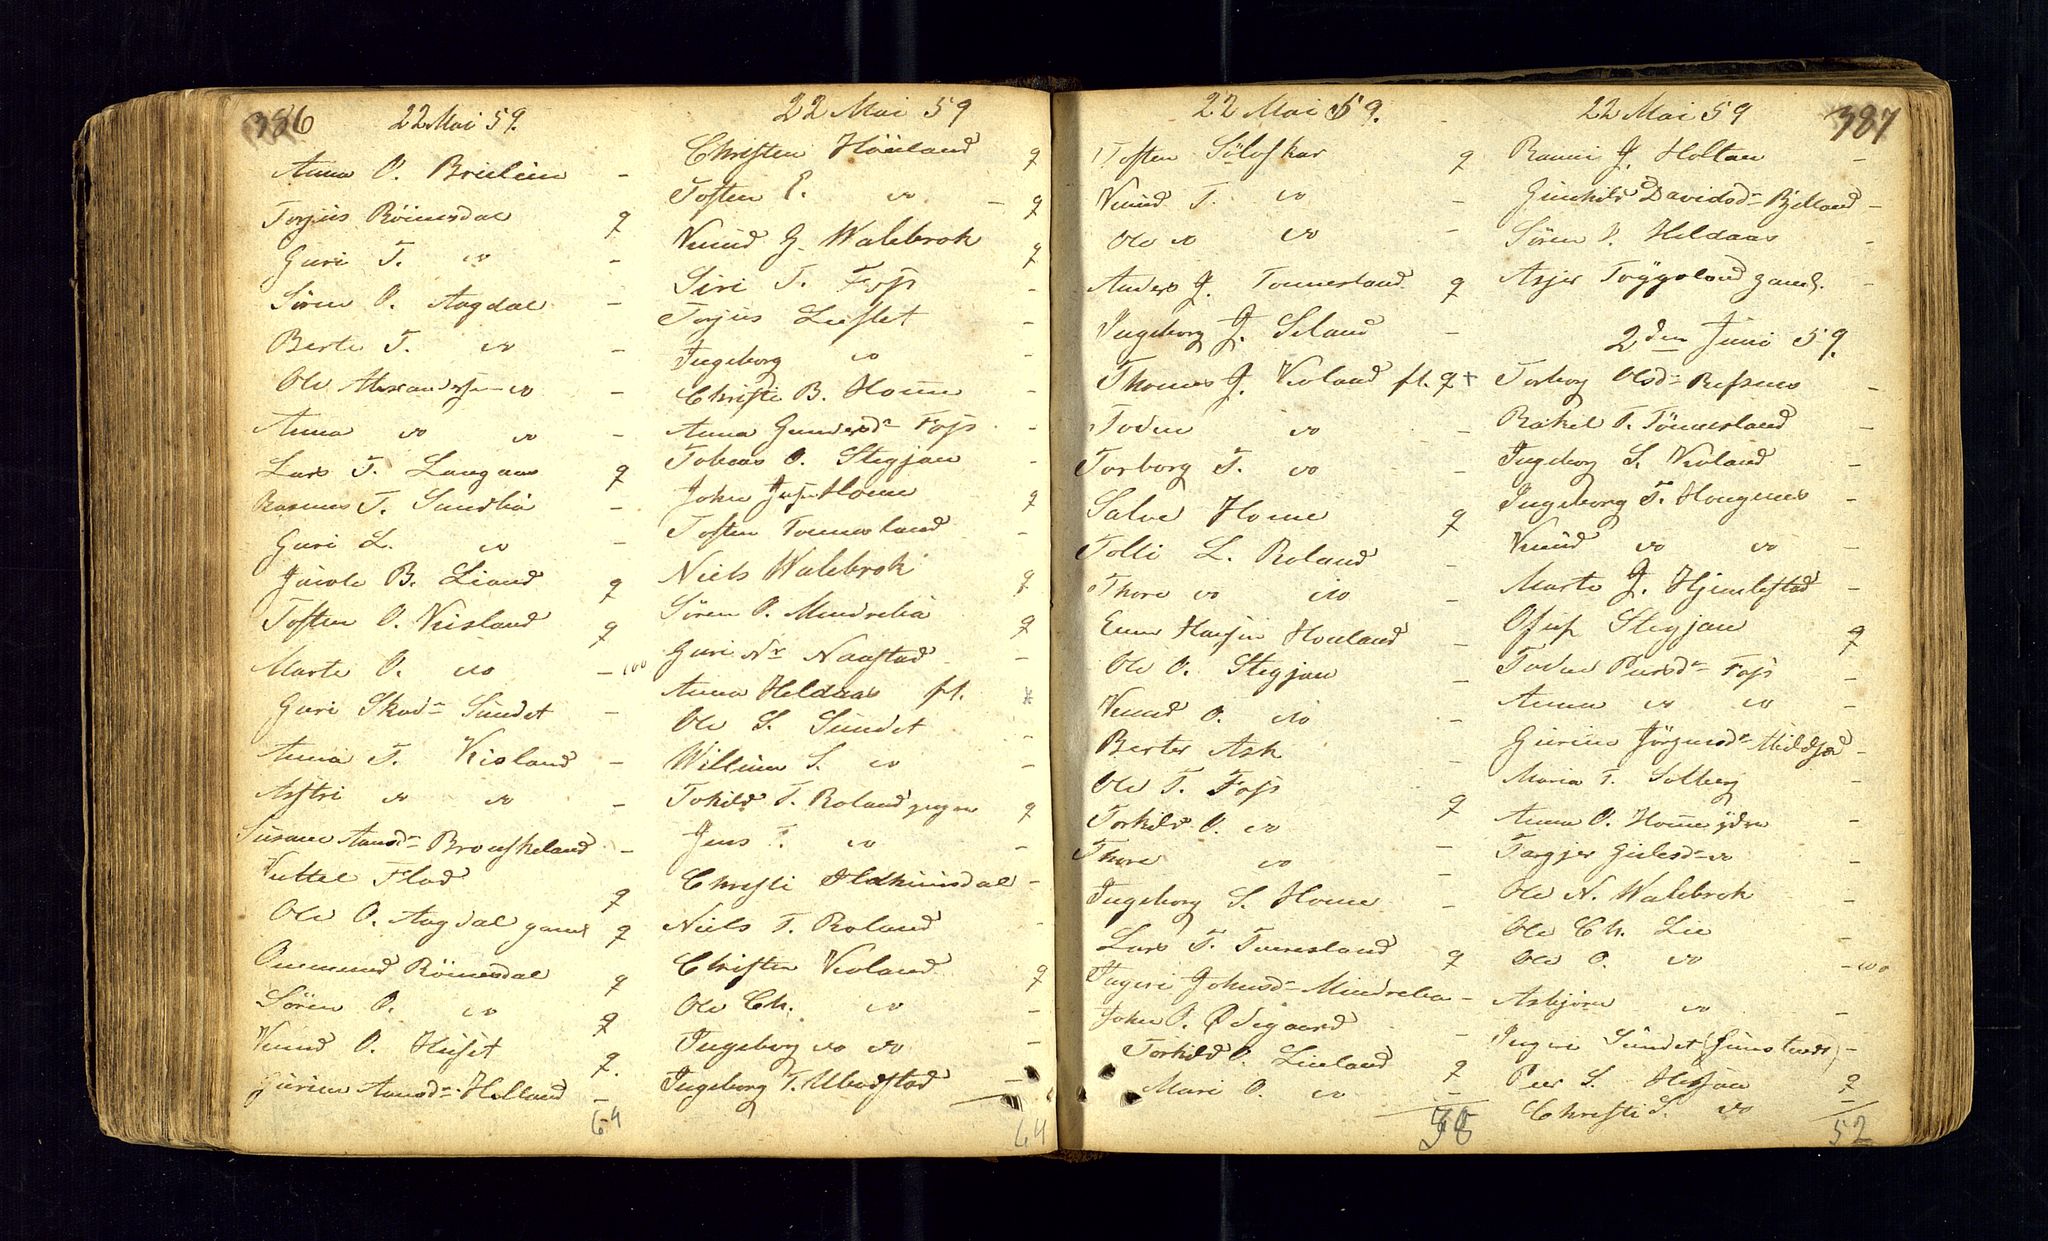 386
22 Mai 59.
Anna O. Brelien -
Torjus Röinesdal q
Guri T. do -
Sören O. Aagdal -
Berte T. do -
Ole Alexandersen do -
Anna do do -
Lars T. Langaas q
Rasmus T. Sundlia -
Guri L. do -
Jacob B. Liand q
Tosten O. Veisland q
Marte O. do - 100
Guri Skod- Sundet -
Anna T. Veisland -
Astri do do -
Susanne Aansd- Brouskeland -
Vettel Flod q
Ole O. Aagdal gaml q
Ommund Röinesdal q
Sören O. do q
Vemund O. Huset q.
Gurine Aansd- Helland -
64
22 Mai 59
Christen Höiland q
Tosten P. do - q
Vemund G. Walebrok q
Siri T. Foss -
Torjus Liestet -
Ingeborg do -
Christi B. Home -
Anna Gundersd- Foss -
Tobias O. Stegjan -
John Jos- Home q
Tosten Tonnesland -
Niels Walebrok q
Sören O. Mindrebia q
Guri Nr Naastad -
Anna Heldaas ft. *
Ole S. Sundet -
Willum S. do -
Tokild T. Roland yngre q
Jens T. do -
Christi Oldhuusdal -
Niels T. Roland -
Christen Veoland q
Ole Ch. do -
Ingeborg do do -
Ingeborg T. Ubostad -
64
22 Mai 59.
Tosten Sölvskar q
Vemund T. do -
Ole do do -
Anders J. Tonnesland q
Ingeborg J. Seland -
Thomas J. Veoland ft. q +
Torine do -
Torborg T. do -
Salve Home q
Tolli L. Roland -
Thore do do -
Emm Hansen Houland -
Ole O. Stegjan -
Vemund O. do -
Berter Ask -
Ole T. Foss q
Torkild O. do -
Thore do -
Ingeborg S. Home -
Lars T. Tveresland q
Ingeri Johnsd- Mindrebia -
John O. Ødegaard -
Torkild O. Lieland q
Mari O. do -
38
387
22 Mai 59
Ranni J. Holtan -
Gunhild Davidsd- Bjelland -
Sören O. Heldaas -
Asjer Toggeland gaml. -
2den Juni 59.
Torborg Olsd- Refsnes -
Rakel T. Tönnesland -
Ingeborg S. Veoland -
Ingeborg T. Haugenes -
Vemund do do -
Marte J. Hjemlestad -
Osuf Stegjan q
Todne Peersd- Foss -
Anna do do -
Gurine Jörgensd- Middsjod -
Maria T. Solberg -
Anna O. Home ydre -
Targjer Gielesd- do -
Ole N. Walebrok -
Ole Ch. Lie -
Ole O. do - 100
Asbjörn do -
Ingeri Sundet (Gunsteds) -
Peer S. Hesjan q
Christi S. do -
52